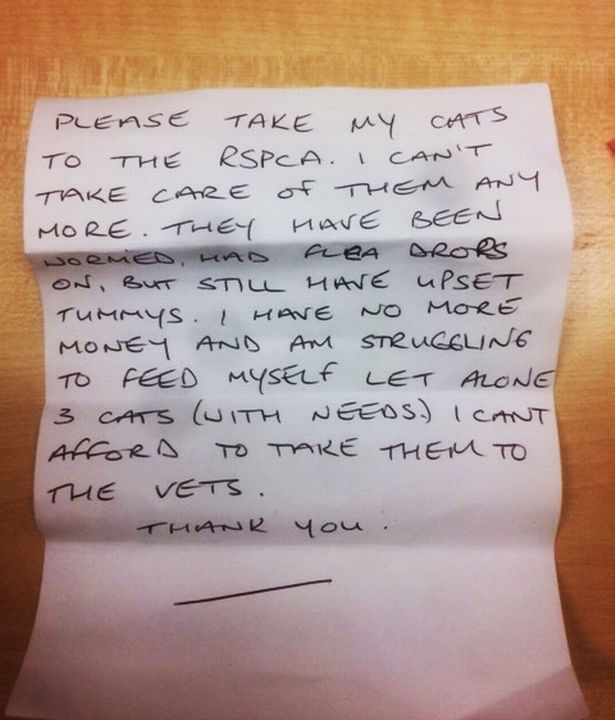 PLEASE TAKE MY CATS
TO THE RSPCA. I CAN'T
TAKE CARE OF THEM ANY
MORE. THEY HAVE BEEN
WORMED, HAD FLEA DROPS
ON, BUT STILL HAVE UPSET
TUMMYS. I HAVE NO MORE
MONEY AND AM STRUGGLING
TO FEED MYSELF LET ALONE
3 CATS (WITH NEEDS.) I CANT
AFFORD TO TAKE THEM TO
THE VETS.
THANK YOU.